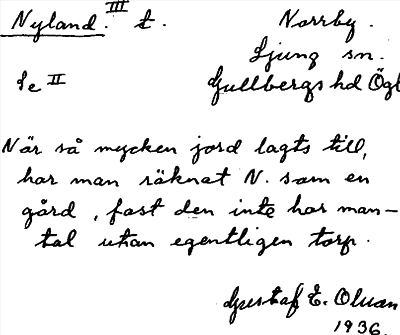 Nyland. III t.
Norrby.
Ljung sn.
Se II
Gullbergs hd Ögl
När så mycken jord lagts till,
har man räknat N. som en
gård, fast den inte har man-
tal utan egentligen torp.
Gustaf E. Olwan
1936.